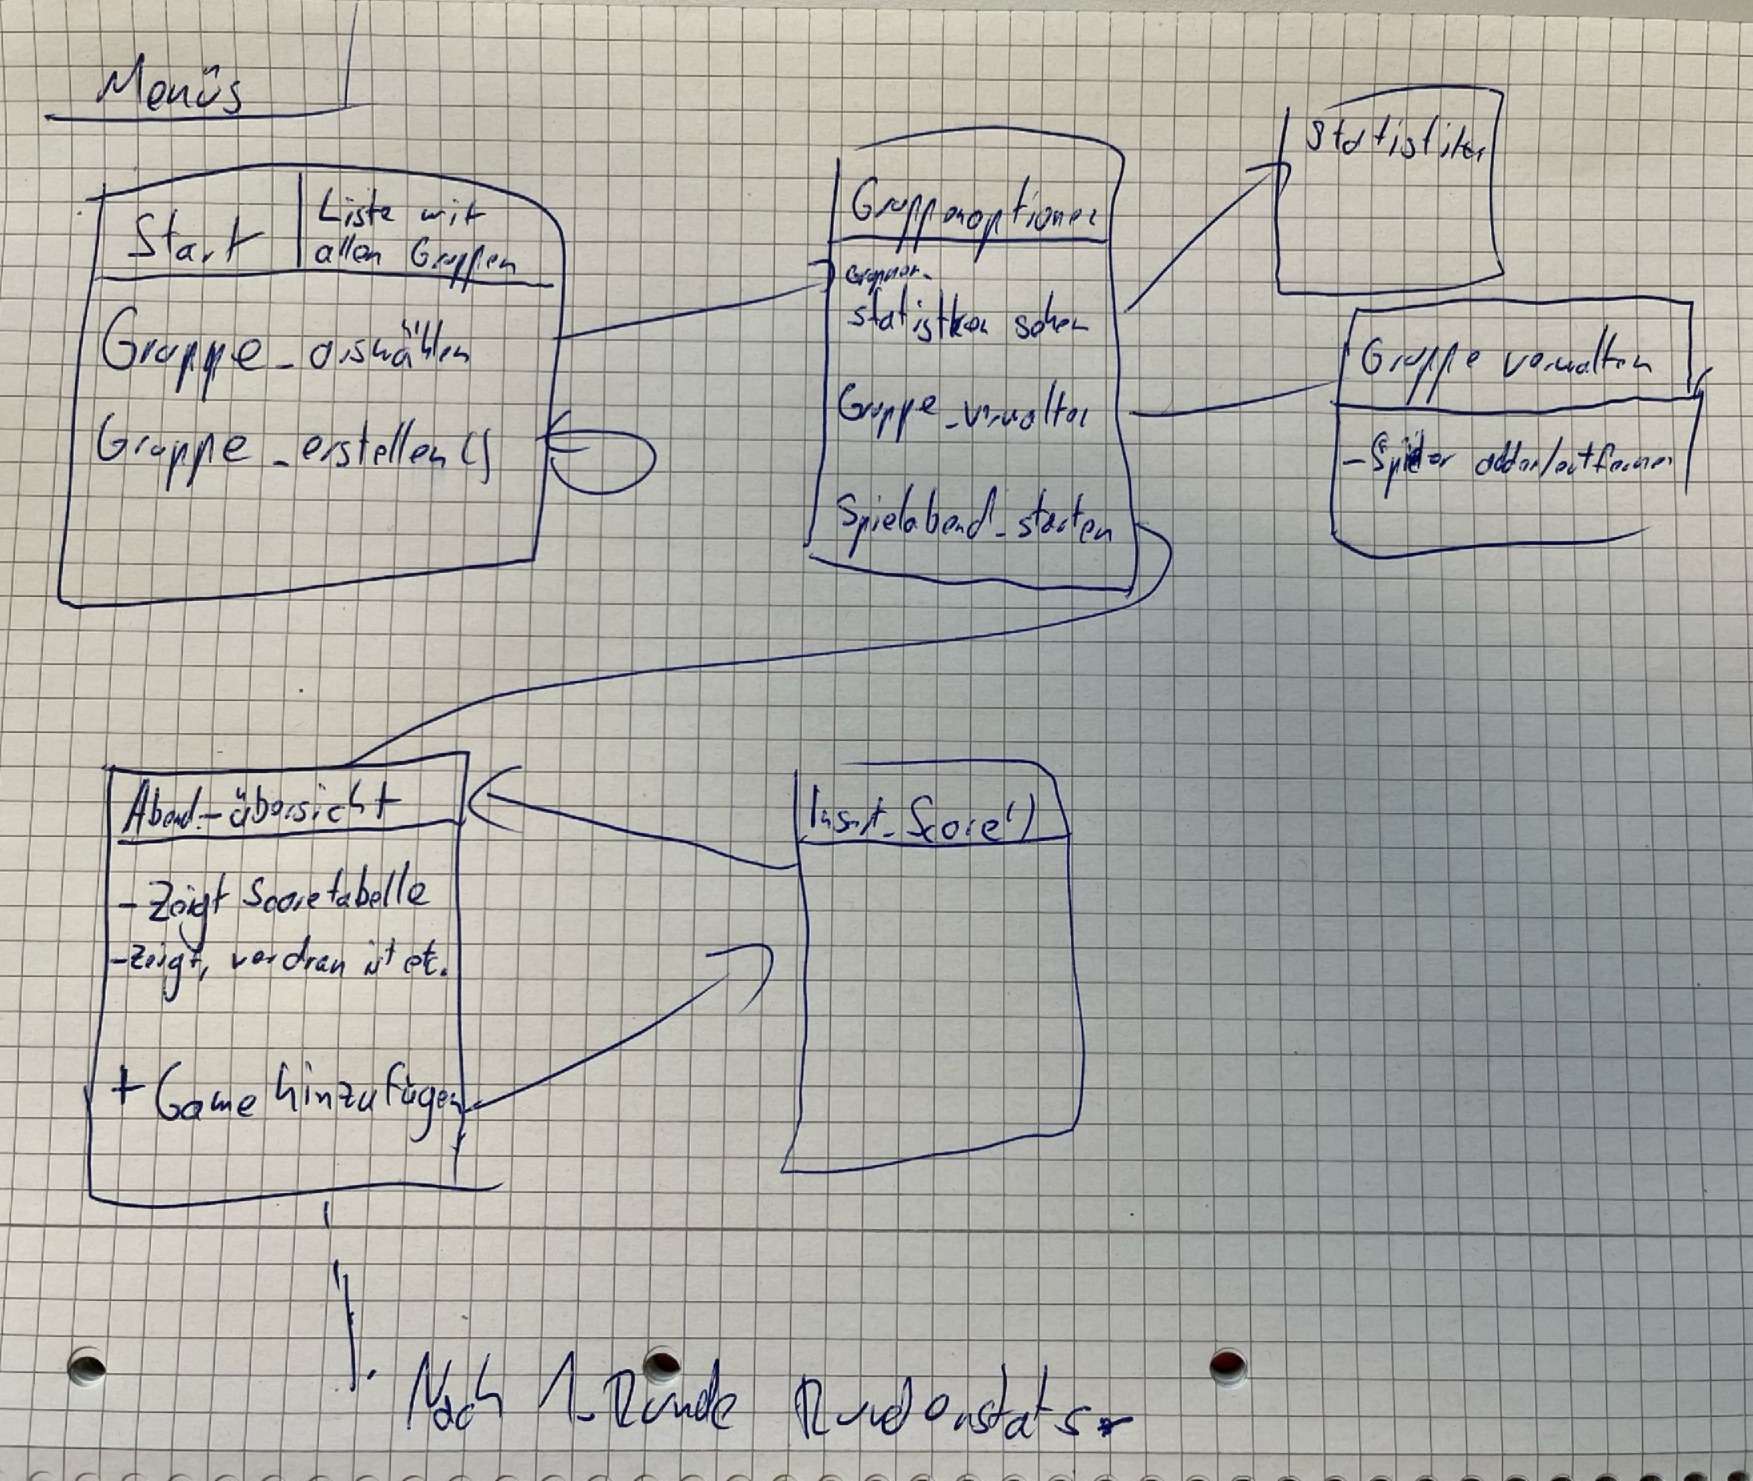 Menüs
Start
Liste mit
allen Gruppen
Gruppe_auswählen
Gruppe_erstellen()
Gruppenoptionen
Gruppen-
statistiken sehen
Gruppe_verwalten
Spielabend_starten
Statistiken
Gruppe verwalten
- Spieler adden/entfernen
Abend-übersicht
- Zeigt Scoretabelle
- Zeigt, wer dran ist etc.
+ Game hinzufügen
Insert_Score()
Nach 1. Runde Rundenstats